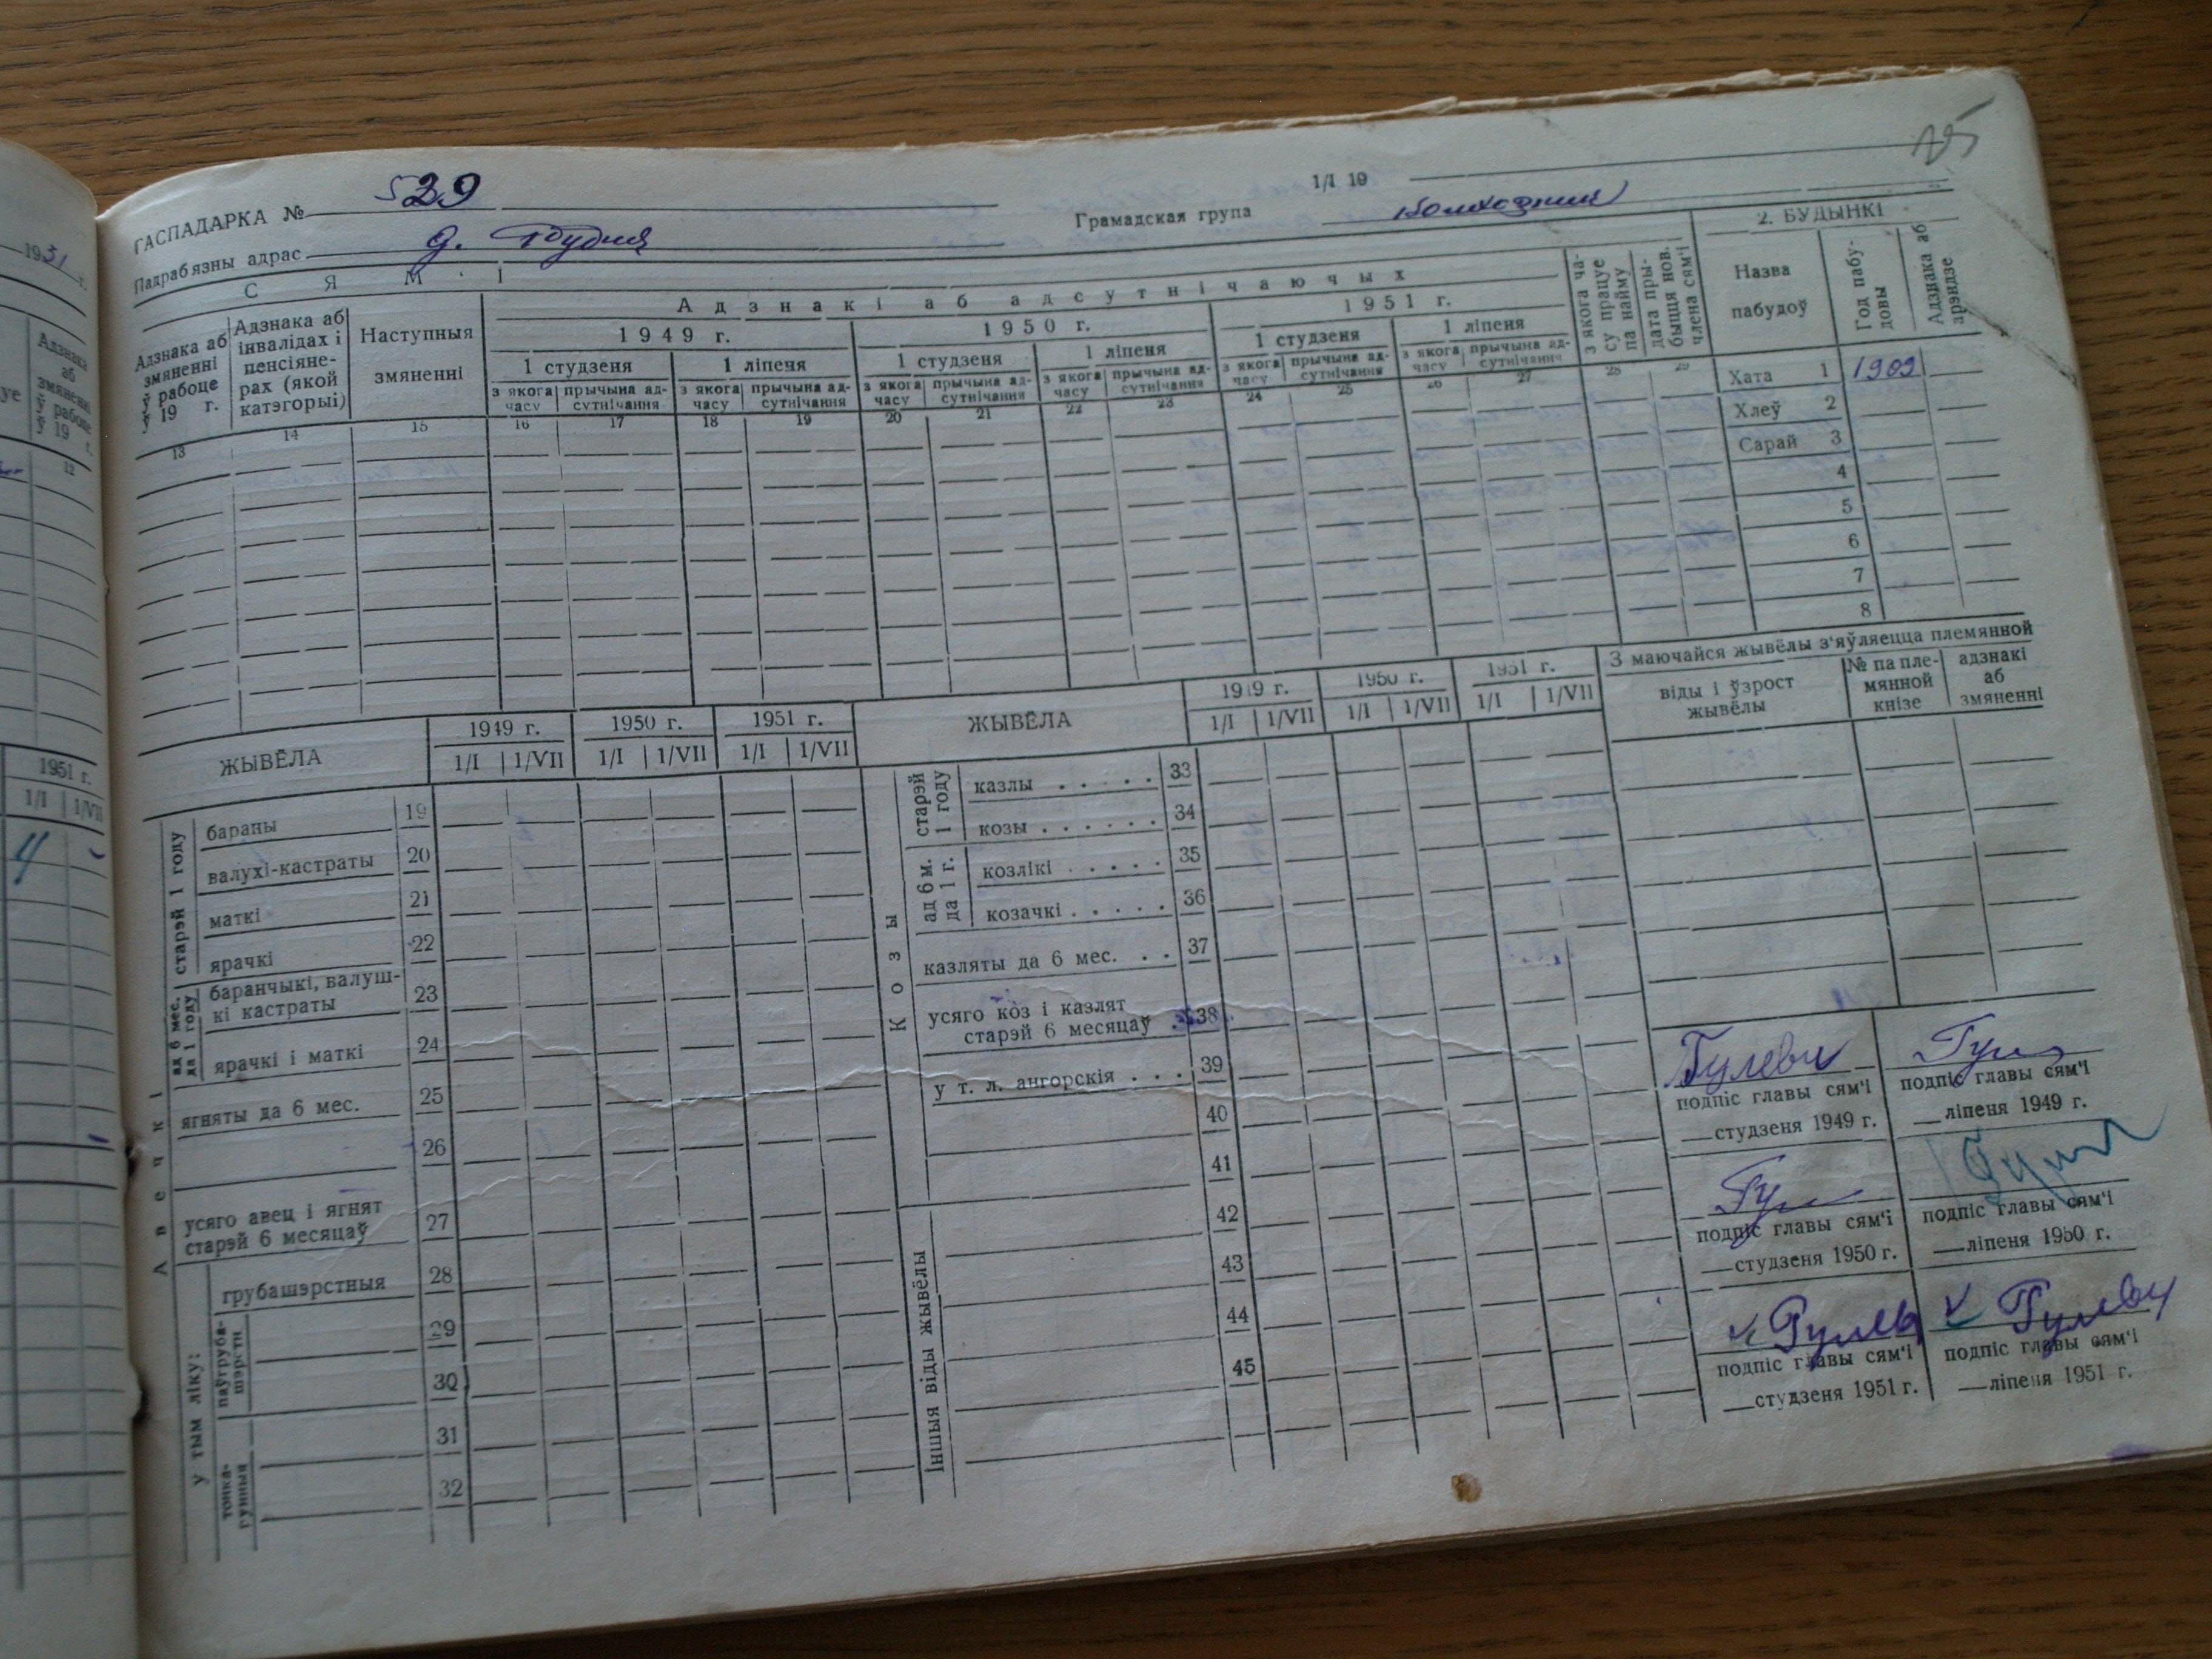 1/I 19
ГАСПАДАРКА № 529
Грамадская група
Падрабязны адрас д.
С Я М ' І
2. БУДЫНКІ
Адзнакі аб адсутнічаючых
Адзнака аб змяненні ў рабоце ў 19 г.
Адзнака аб інвалідах і пенсіянерах (якой катэгорыі)
Наступныя змяненні
1949 г.
1950 г.
1951 г.
1 студзеня
1 ліпеня
1 студзеня
1 ліпеня
1 студзеня
1 ліпеня
з якога часу
прычына адсутнічання
з якога часу
прычына адсутнічання
з якога часу
прычына адсутнічання
з якога часу
прычына адсутнічання
з якога часу
прычына адсутнічання
з якога часу
прычына адсутнічання
з якога часу працуе па найму
дата прыбыцця нов. члена сям'і
Назва пабудоў
Год пабудовы
Адзнака аб арэндзе
13 14 15 16 17 18 19 20 21 22 23 24 25 26 27 28 29
Хата 1 1909
Хлеў 2
Сарай 3
4
5
6
7
8
ЖЫВЁЛА
1949 г.
1950 г.
1951 г.
1/I 1/VII 1/I 1/VII 1/I 1/VII
Авечкі
старэй 1 году
бараны 19
валухі-кастраты 20
маткі 21
ярачкі 22
ад 6 мес. да 1 году
баранчыкі, валуш-
кі кастраты 23
ярачкі і маткі 24
ягняты да 6 мес. 25
26
усяго авец і ягнят
старэй 6 месяцаў 27
у тым ліку:
грубашэрстныя 28
паўгруба-
шэрстн.
29
30
тонка-
рунныя
31
32
ЖЫВЁЛА
1949 г.
1950 г.
1951 г.
1/I 1/VII 1/I 1/VII 1/I 1/VII
Козы
старэй 1 году
казлы . . . . . 33
козы . . . . . . 34
ад 6 м. да 1 г.
козлікі . . . . . 35
козачкі . . . . . 36
казляты да 6 мес. . . 37
усяго коз і казлят
старэй 6 месяцаў . 38
у т. л. ангорскія . . . 39
40
41
Іншыя віды жывёлы
42
43
44
45
З маючайся жывёлы з'яўляецца племянной
віды і ўзрост жывёлы
№ па племянной кнізе
адзнакі аб змяненні
подпіс главы сям'і
студзеня 1949 г.
подпіс главы сям'і
ліпеня 1949 г.
подпіс главы сям'і
студзеня 1950 г.
подпіс главы сям'і
ліпеня 1950 г.
подпіс главы сям'і
студзеня 1951 г.
подпіс главы сям'і
ліпеня 1951 г.
1931 г.
Адзнака аб змяненні ў рабоце ў 19 г.
12
1951 г.
1/I 1/VII
4